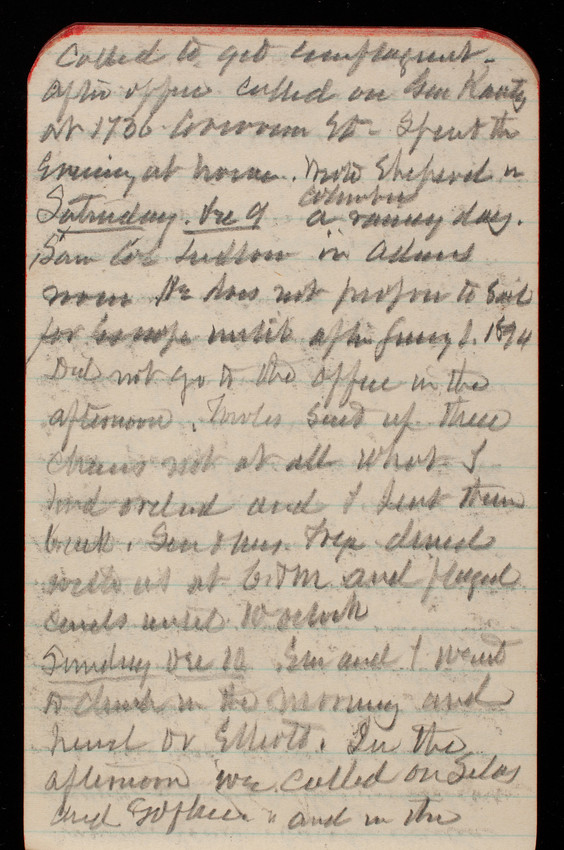 Called to get
After office called on Gen
at 1736 St - Spent the
Evening at home. Shepard
Columbia
Saturday. Dec 9 a rainy day.
Saw Col Ludlow in Adams
room He does not propose to sail
for Europe until after Jany 1. 1894
Did not go to the office in the
afternoon. Towles send up three
chairs not at all what I
had orderd and I sent them
back. Gen & Mrs. dined
with us at 6 PM and played
cards until 10 oclock
Sunday Dec 10 Em and I went
to church in the morning and
heard Dr Elliott. In the
afternoon we called on Silas
and Sophie. and in the